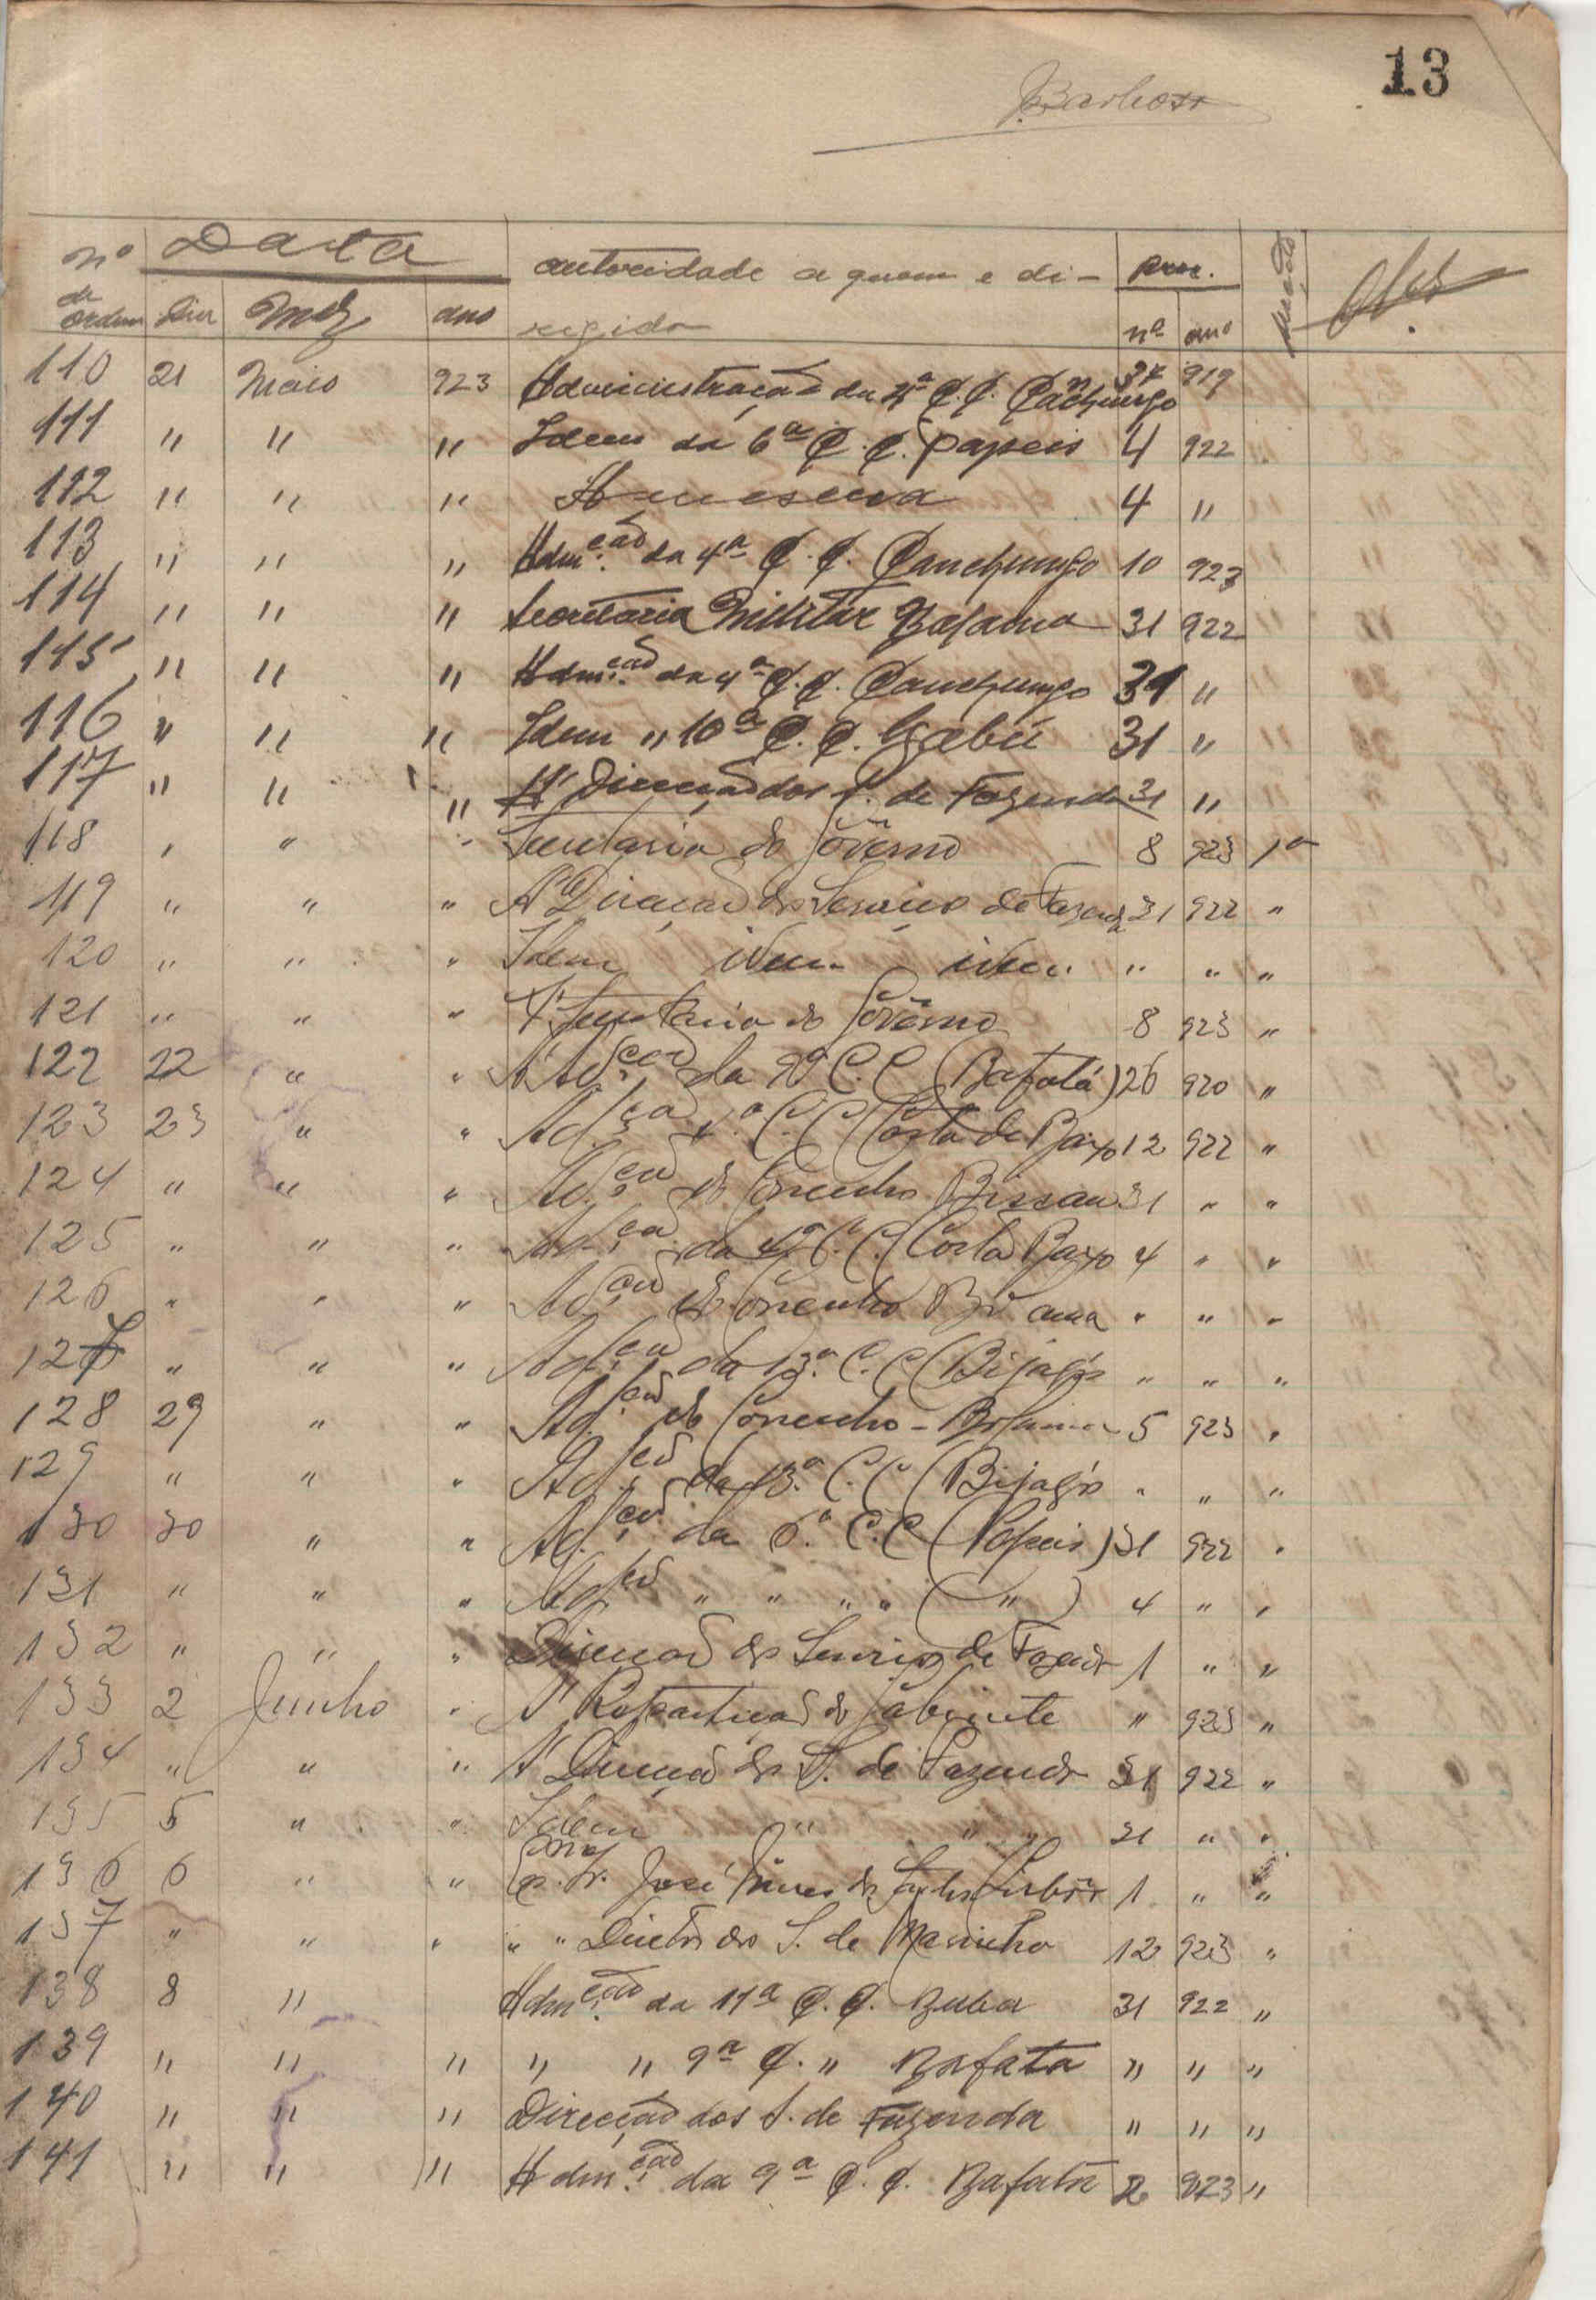 13
Barbosa
nº de ordem Data Dia Mez ano autoridade a quem e di- proc. nº ano Obs
rigido
110 21 Maio 923 Administração da 4ª C. C. Canchungo 37 919
111 " " " Idem da 6ª C. C. Papeis 4 922
112 " " " A mesma 4 "
113 " " " Adm.ção da 4ª C. C. Canchungo 10 923
114 " " " Secretaria Militar Bolama 31 922
115 " " " Adm.ção da 4ª C. C. Canchungo 31 "
116 " " " Idem " 10ª C. C. Gabú 31 "
117 " " " Á Direcção dos S. de Fazenda 31 "
118 " " " Secretaria do Govêrno 8 923 1ª
119 " " " Á Direcção dos Serviços de Fazenda 31 922 "
120 " " " Idem idem idem " " "
121 " " " Á Secretaria do Govêrno 8 923 "
122 22 " " Á Ad.ção da 9ª C. C (Bafatá) 26 920 "
123 23 " " Ad.ção 4ª C. C (Costa de Baixo 12 922 "
124 " " " Ad.ção do Concelho Bissau 31 " "
125 " " " Ad.ção da 4ª C. C. (Costa Baixo 4 " "
126 " " " Ad.ção do Concelho Bolama " " "
127 " " " Ad.ção da 13.ª C. C (Bijagós " " "
128 29 " " Ad.ção do Concelho - Bolama 5 923 "
129 " " " Ad.ção da 13.ª C. C (Bijagós " " "
130 30 " " Ad.ção da 6.ª C. C (Papeis) 31 922 "
131 " " " Ad.ção " " " " ( " ) 4 " "
132 " " " Direcção dos Serviços de Fazenda 1 " "
133 2 Junho " Á Repartição do Gabinete " 923 "
134 " " " Á Direcção dos S. de Fazenda 31 922 "
135 5 " " Idem " " " 31 " "
136 6 " " Exmo. Sr. José Lisboa 1 " "
137 " " " " " Director dos S. de Marinha 12 923 "
138 8 " Adm.ção da 11ª C. C. Buba 31 922 "
139 " " " " " 9ª C. " Bafata " " "
140 " " " Direcção dos S. de Fazenda " " "
141 " " " Adm.ção da 9ª C. C. Bafatá 2 923 "